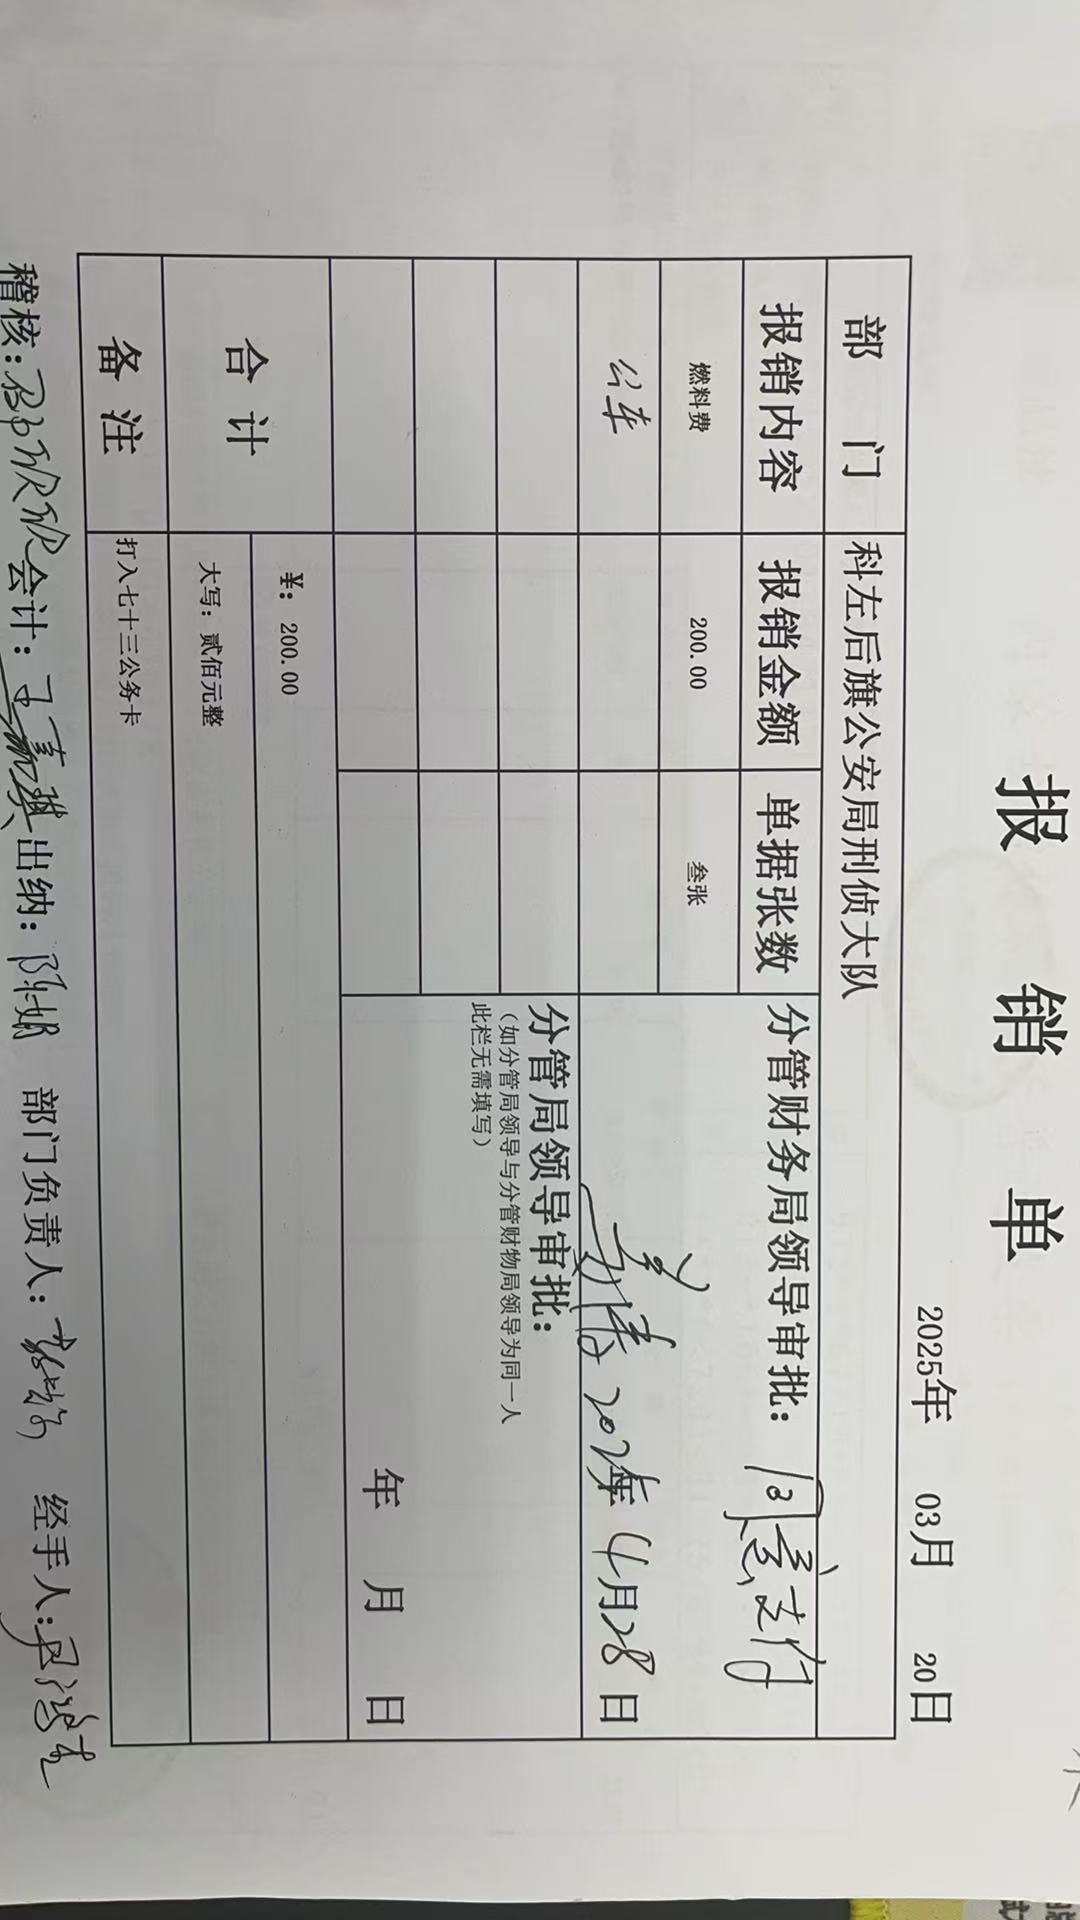 报 销 单
2025年 03月 20日
部 门 科左后旗公安局刑侦大队
报销内容 报销金额 单据张数 分管财务局领导审批: 同意支付
燃料费 200.00 叁张
公车
2025年4月28日
分管局领导审批:
(如分管局领导与分管财物局领导为同一人
此栏无需填写)
年 月 日
合 计 ¥: 200.00
大写: 贰佰元整
备 注 打入七十三公务卡
稽核: 会计: 出纳: 部门负责人: 经手人: